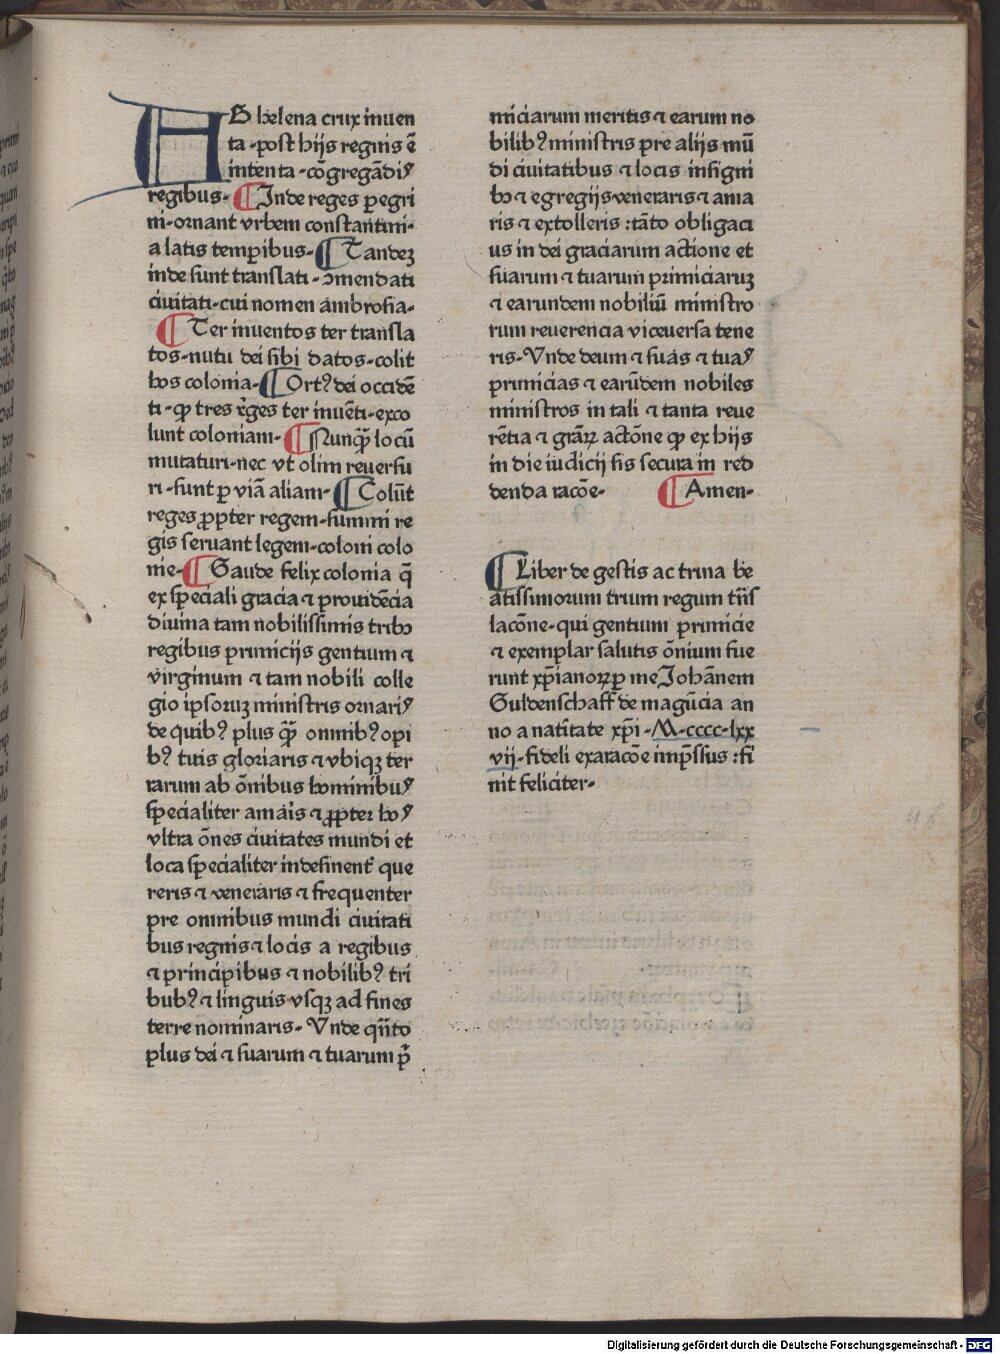 AB helena crux inuen
ta·post hijs regnis ē
intenta·cōgregādis
regibus· ¶ Inde reges peregri
ni·ornant vrbem constantini·
a latis temꝑibus· ¶ Tandeꝫ
inde sunt translati·ↄmendati
ciuitati·cui nomen ambrosia·
¶ Ter inuentos ter transla
tos·nutu dei sibi datos·colit
hos colonia· ¶ Ortꝰ dei occidē
ti·ꝙ tres rēges ter inuēti·exco
lunt coloniam· ¶ Nunqͣꝫ locū
mutaturi·nec vt olim reuersu
ri·sunt ꝑ viā aliam· ¶ Colūt
reges ꝓpter regem·summi re
gis seruant legem·coloni colo
nie· ¶ Gaude felix colonia q̄
ex speciali gracia ⁊ prouidēcia
diuina tam nobilissimis tribꝫ
regibus primicijs gentium ⁊
virginum ⁊ tam nobili colle
gio ipsoruꝫ ministris ornaris
de quibꝰ plus qͣꝫ omnibꝰ opi
bꝰ tuis gloriaris ⁊ vbiqꝫ ter
rarum ab ōnibus hominibus
specialiter amaīs ⁊ ꝓpter hos
vltra ōnes ciuitates mundi et
loca specialiter indesinent᷑ que
reris ⁊ veneraris ⁊ frequenter
pre omnibus mundi ciuitati
bus regnis ⁊ locis a regibus
⁊ principibus ⁊ nobilibꝰ tri
bubꝰ ⁊ linguis vsqꝫ ad fines
terre nominaris· Vnde qn̄to
plus dei ⁊ suarum ⁊ tuarum pͥ
miciarum meritis ⁊ earum no
bilibꝰ ministris pre alijs mū
di ciuitatibus ⁊ locis insigni
bꝫ ⁊ egregijs veneraris ⁊ ama
ris ⁊ extolleris :tāto obligaci
us in dei graciarum actione et
suarum ⁊ tuarum primiciaruꝫ
⁊ earundem nobiliū ministro
rum reuerencia viceuersa tene
ris·Vnde deum ⁊ suas ⁊ tuas
primicias ⁊ earūdem nobiles
ministros in tali ⁊ tanta reue
rētia ⁊ grāꝝ actōne ꝙ ex hijs
in die iudicij sis secura in red
denda racōe· ¶ Amen·
¶ Liber de gestis ac trina be
atissimorum trium regum trīs
lacōne·qui gentium primicie
⁊ exemplar salutis ōnium fue
runt xp̄ianoꝝ ꝑ me Johānem
Guldenschaff de magūcia an
no a natītate xp̄i·M·cccc·lxx
vij·fideli exaracōe imp̄ssus :fi
nit feliciter·
Digitalisierung gefördert durch die Deutsche Forschungsgemeinschaft - DFG